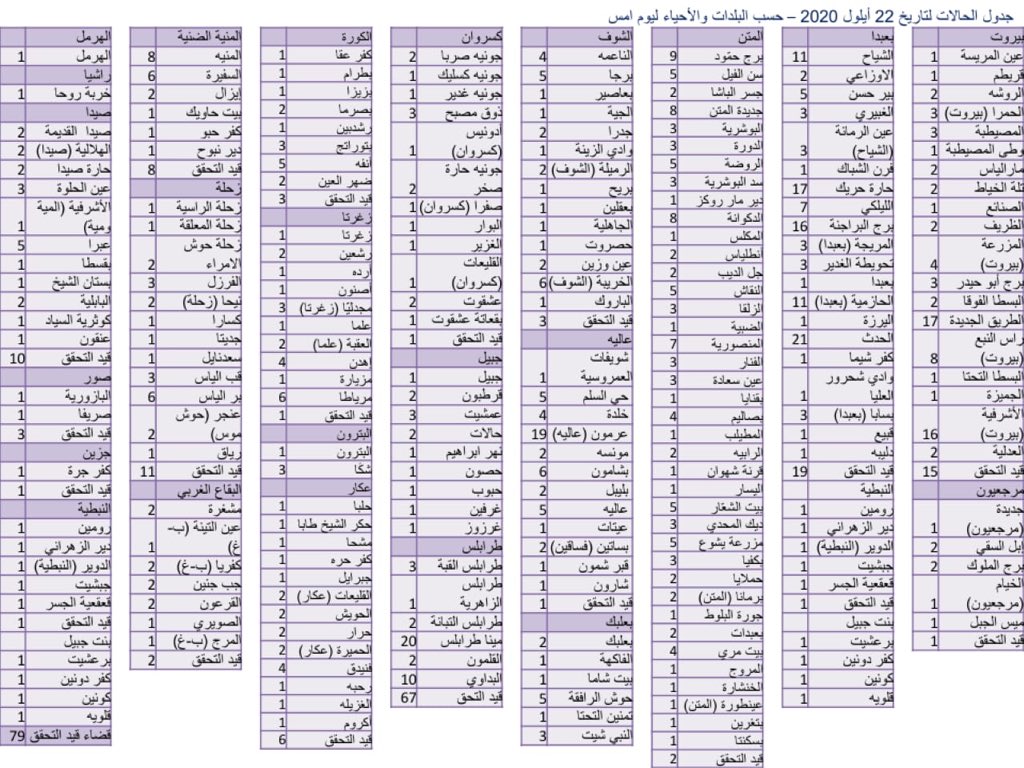 جدول الحالات لتاريخ 22 أيلول 2020 – حسب البلدات والأحياء ليوم امس
بيروت
عين المريسة 1
قريطم 1
الروشه 2
الحمرا (بيروت) 3
المصيطبة 3
وطى المصيطبة 1
مارالياس 2
تلة الخياط 2
الصنائع 1
الظريف 2
المزرعة
(بيروت) 4
برج أبو حيدر 3
البسطا الفوقا 2
الطريق الجديدة 17
راس النبع
(بيروت) 8
البسطا التحتا 1
الجميزة 1
الأشرفية
(بيروت) 16
العدلية 2
قيد التحقق 15
مرجعيون
جديدة
(مرجعيون) 1
إبل السقي 2
برج الملوك 2
الخيام
(مرجعيون) 1
ميس الجبل 1
قيد التحقق 1
بعبدا
الشياح 11
الاوزاعي 2
بير حسن 5
الغبيري 3
عين الرمانة
(الشياح) 3
فرن الشباك 1
حارة حريك 17
الليلكي 7
برج البراجنة 16
المريجة (بعبدا) 3
تحويطة الغدير 3
بعبدا 1
الحازمية (بعبدا) 11
اليرزة 1
الحدث 21
كفر شيما 1
وادي شحرور
العليا 1
بسابا (بعبدا) 3
قبيع 1
دليبه 1
قيد التحقق 19
النبطية
رومين 1
دير الزهراني 1
الدوير (النبطية) 1
جبشيت 1
قعقعية الجسر 1
قيد التحقق 1
بنت جبيل
برعشيت 1
كفر دونين 1
كونين 1
قلويه 1
المتن
برج حمّود 9
سن الفيل 5
جسر الباشا 2
جديدة المتن 8
البوشرية 3
الدورة 3
الروضة 5
سد البوشرية 3
دير مار روكز 1
الدكوانة 8
المكلس 1
انطلياس 2
جل الديب 2
النقاش 5
الزلقا 3
الضبية 1
المنصورية 7
الفنار 3
عين سعادة 3
بقنايا 1
بصاليم 4
المطيلب 1
الرابيه 2
قرنة شهوان 1
اليسار 1
بيت الشعّار 5
ديك المحدي 3
مزرعة يشوع 5
بكفيا 3
حملايا 2
برمانا (المتن) 2
جورة البلوط 1
بعبدات 2
بيت مري 4
المروج 1
الخنشارة 1
عينطورة (المتن) 1
بتغرين 1
بسكنتا 1
قيد التحقق 2
الشوف
الناعمه 4
برجا 5
بعاصير 1
الجية 1
جدرا 2
وادي الزينة 1
الرميلة (الشوف) 2
بريح 1
بعقلين 1
الجاهلية 1
حصروت 1
عين وزين 2
الخريبة (الشوف) 6
الباروك 1
قيد التحقق 3
عاليه
شويفات
العمروسية 1
حي السلم 5
خلدة 4
عرمون (عاليه) 19
مونسه 2
بشامون 6
بليبل 2
عاليه 5
عيتات 1
بساتين (فساقين) 2
قبر شمون 1
شارون 1
قيد التحقق 1
بعلبك
بعلبك 2
الفاكهة 1
بيت شاما 1
حوش الرافقة 5
تمنين التحتا 1
النبي شيت 3
كسروان
جونيه صربا 2
جونيه كسليك 1
جونيه غدير 1
ذوق مصبح 3
أدونيس
(كسروان) 1
جونيه حارة
صخر 2
صفرا (كسروان) 1
البوار 1
الغزير 1
القليعات
(كسروان) 1
عشقوت 2
بقعاتة عشقوت 1
قيد التحقق 1
جبيل
جبيل 1
قرطبون 2
عمشيت 3
حالات 2
نهر ابراهيم 1
حصون 1
حبوب 1
غرفين 1
غرزوز 1
طرابلس
طرابلس القبة 3
طرابلس
الزاهرية 1
طرابلس التبانة 2
مينا طرابلس 20
القلمون 2
البداوي 10
قيد التحق 67
الكورة
كفر عقا 1
بطرام 1
بزيزا 1
بصرما 2
رشدبين 1
بتوراتج 3
أنفه 5
ضهر العين 2
قيد التحقق 3
زغرتا
زغرتا 1
رشعين 2
أرده 1
أصنون 1
مجدليّا (زغرتا) 3
علما 1
العقبة (علما) 2
إهدن 4
مزيارة 1
مرياطا 6
قيد التحقق 1
البترون
البترون 1
شكّا 3
عكار
حلبا 1
حكر الشيخ طابا 1
مشحا 1
كفر حره 1
جبرايل 1
القليعات (عكار) 2
الحويش 2
حرار 2
الحميرة (عكار) 2
فنيدق 4
رحبه 1
الغزيله 1
أكروم 1
قيد التحقق 6
المنية الضنية
المنيه 8
السفيرة 6
إيزال 2
بيت حاويك 1
كفر حبو 1
دير نبوح 1
قيد التحقق 8
زحلة
زحلة الراسية 1
زحلة المعلقة 1
زحلة حوش
الامراء 2
الفرزل 3
نيحا (زحلة) 2
كسارا 1
جديتا 1
سعدنايل 1
قب الياس 3
بر الياس 6
عنجر (حوش
موس) 2
رياق 1
قيد التحقق 11
البقاع الغربي
مشغرة 2
عين التينة (ب-
غ) 1
كفريا (ب-غ) 2
جب جنين 2
القرعون 2
الصويري 1
المرج (ب-غ) 1
قيد التحقق 2
الهرمل
الهرمل 1
راشيا
خربة روحا 1
صيدا
صيدا القديمة 2
الهلالية (صيدا) 2
حارة صيدا 2
عين الحلوة 3
الأشرفية (المية
ومية) 1
عبرا 5
بقسطا 1
بستان الشيخ 1
البابلية 2
كوثرية السياد 1
عنقون 1
قيد التحقق 10
صور
البازورية 1
صريفا 1
قيد التحقق 3
جزين
كفر جرة 1
قيد التحقق 1
النبطية
رومين 1
دير الزهراني 1
الدوير (النبطية) 1
جبشيت 1
قعقعية الجسر 1
قيد التحقق 1
بنت جبيل
برعشيت 1
كفر دونين 1
كونين 1
قلويه 1
قضاء قيد التحقق 79